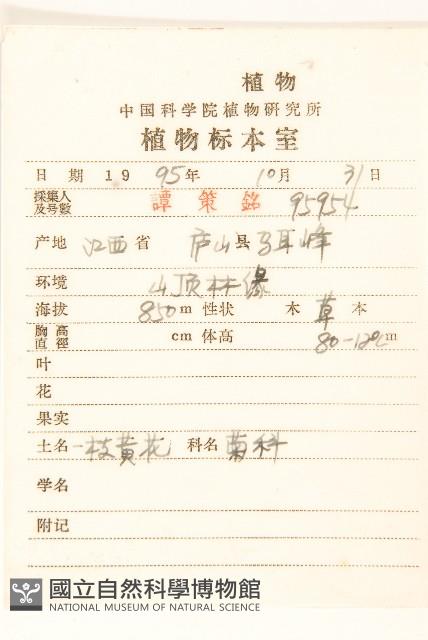 植物
中国科学院植物研究所
植物标本室
日期 1995年 10月 31日
採集人及号数 譚策銘 95954
产地 江西省 庐山县马耳峰
环境 山顶林缘
海拔 850m 性状 木 草 本
胸高直徑 cm 体高 80-120cm
叶
花
果实
土名 一枝黄花 科名 菊科
学名
附记
國立自然科學博物館
NATIONAL MUSEUM OF NATURAL SCIENCE